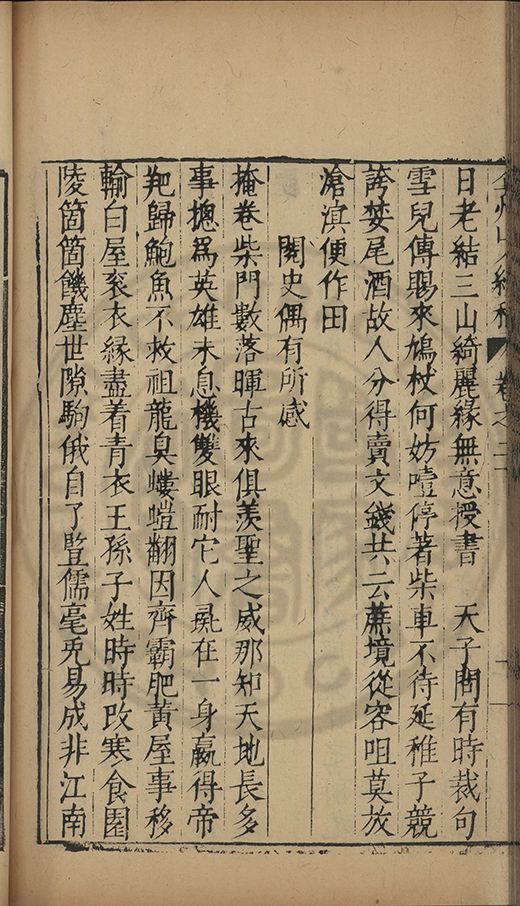 日老結三山綺麗緣無意授書 天子問有時裁句
雪兒傳賜來鳩杖何妨噎停著柴車不待延稚子競
誇婪尾酒故人分得賣文錢共云蔗境從容咀莫放
滄溟便作田
閱史偶有所感
掩卷柴門數落暉古來俱羨聖之威那知天地長多
事摠爲英雄未息機雙眼耐它人乕在一身贏得帝
羓歸鮑魚不救祖龍臭螻螘翻因齊霸肥黃屋事移
輸白屋衮衣緣盡着青衣王孫子姓時時改寒食園
陵箇箇饑塵世隙駒俄自了豎儒毫兎易成非江南